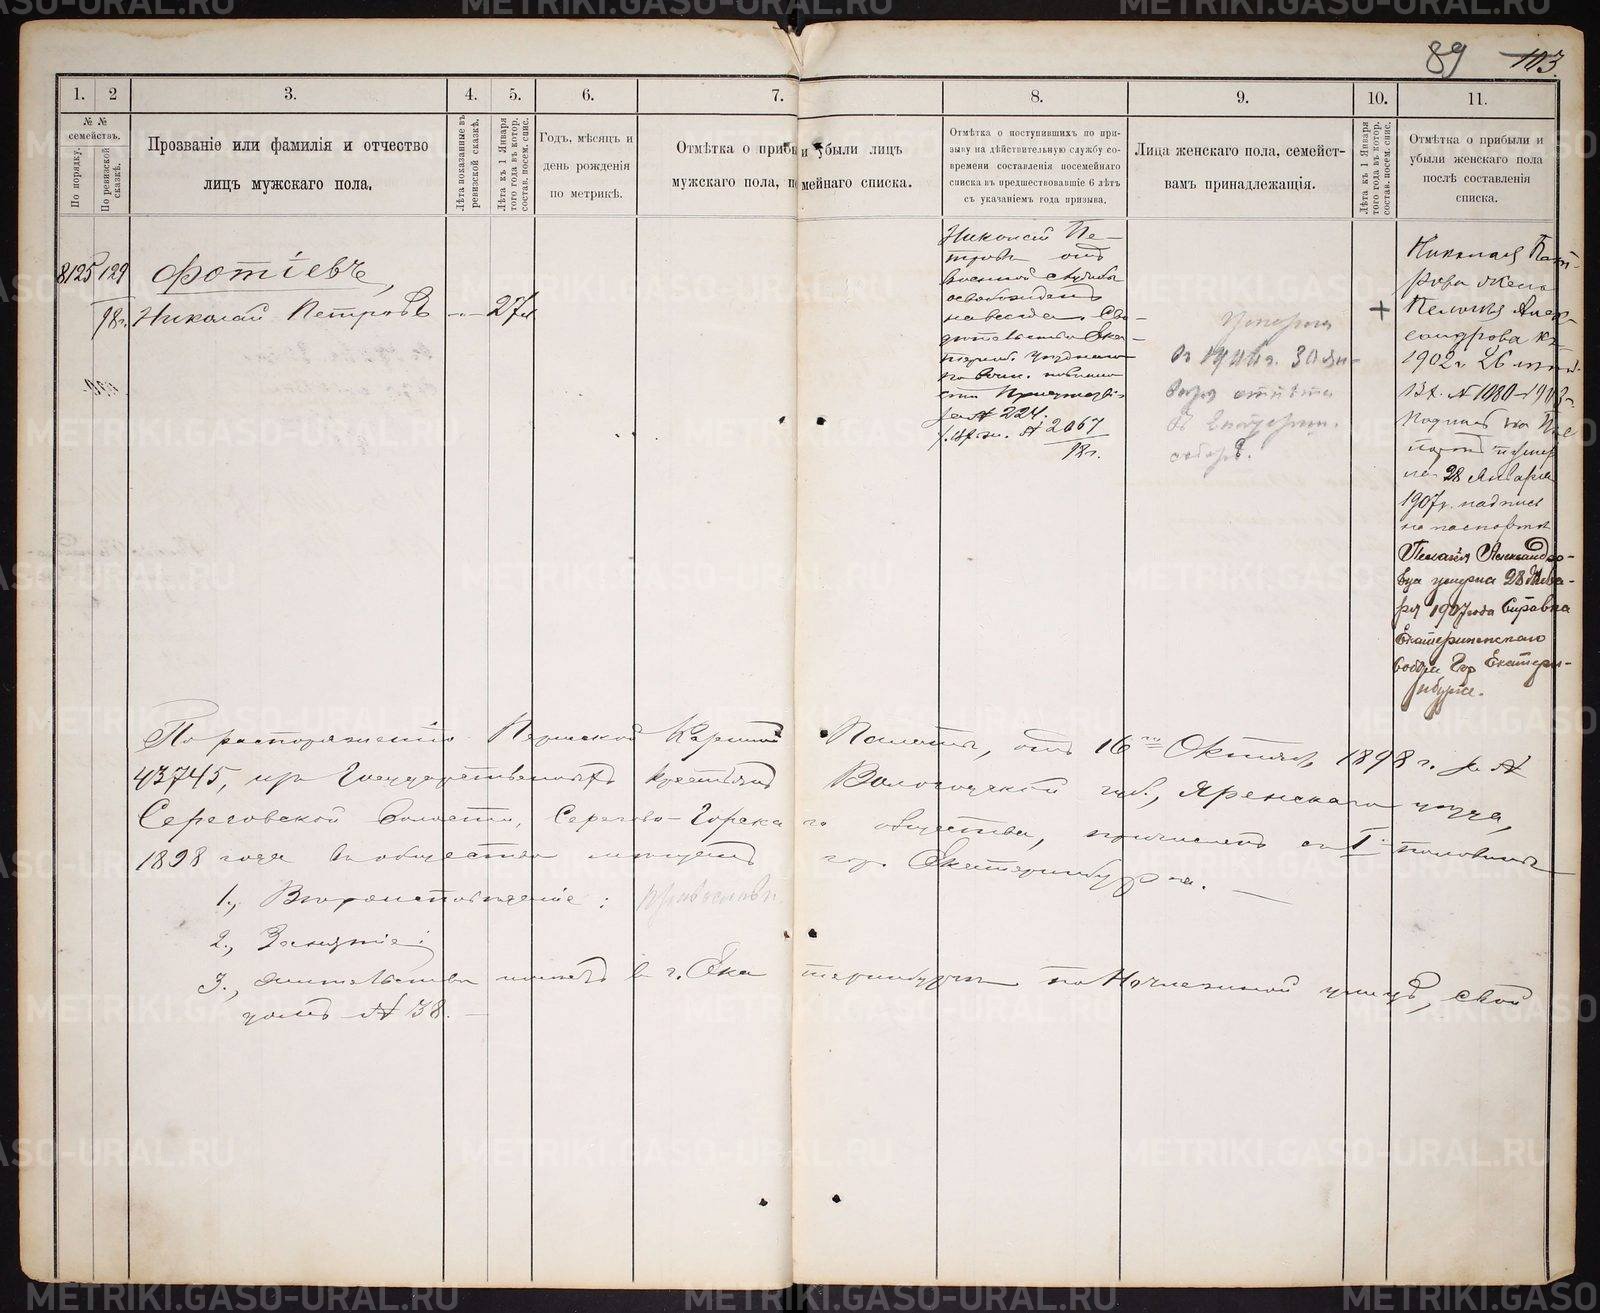 89 103.
1. 2 3. 4. 5. 6. 7. 8. 9. 10. 11.
№ № семействъ.
По порядку.
По ревизской сказкѣ.
Прозваніе или фамилія и отчество
лицъ мужскаго пола.
Лѣта показанные въ ревизской сказкѣ.
Лѣта къ 1 Января того года въ котор. состав. посем. спис.
Годъ, мѣсяцъ и
день рожденія
по метрикѣ.
Отмѣтка о прибы и убыли лицъ
мужскаго пола, п мейнаго списка.
Отмѣтка о поступившихъ по при-
зыву на дѣйствительную службу со-
времени составленія посемейнаго
списка въ предшествовавшіе 6 лѣтъ
съ указаніемъ года призыва.
Лица женскаго пола, семейст-
вамъ принадлежащія.
Лѣта къ 1 Января того года въ котор. состав. посем. спис.
Отмѣтка о прибыли и
убыли женскаго пола
послѣ составленія
списка.
8125 129
98г.
Фотіевъ,
Николай Петровъ 27л
Николай Пе-
тровъ отъ
военной службы
освобожденъ
навсегда. Сви-
дѣтельство Ека-
терин. Уѣзднаго
по воин. повинно
сти Присутствія
за № 224.
№ 2067
98г.
30 Ян-
варя
въ Екатерин.
соборѣ.
+
Николая Пет-
рова жена
Пелагея Алек-
сандрова
1902г. 26
вх. № 1080-1903г.
28 Января
1907г. надпись
на паспортѣ
Пелагія Александро-
ва умерла 28 Янва-
ря 1907 года Справка
Екатерининскаго
Собора Гор Екатерин-
бурга.
По распоряженію Пермской Казенной Палаты, отъ 16го Октября 1898 г. за №
43745, изъ Государственныхъ крестьянъ Вологодской губ., Яренскаго уѣзда,
Сереговской волости, Серегово-Горскаго общества, причисленъ съ I половины
1898 года въ общество мѣщанъ гор. Екатеринбурга. —
1., Вѣроисповѣданіе: Православн.
2., Занятіе:
3., жительство имѣетъ въ г. Екатеринбургѣ по улицѣ, свой
домъ № 38. —
METRIKI.GASO-URAL.RU